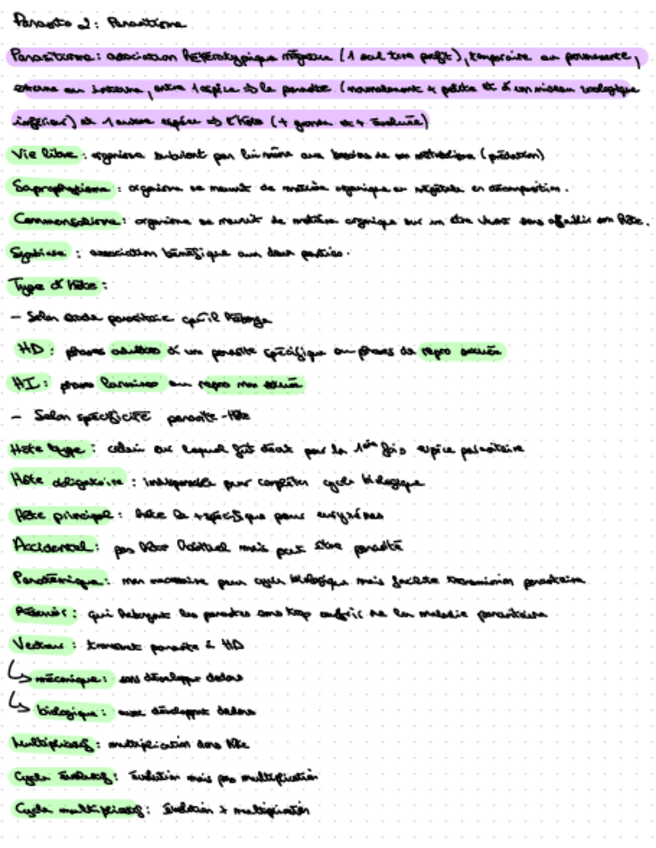 Parasito 2 : Parasitisme
Parasitisme : association hétérotypique négative (1 seul tire profit), temporaire ou permanente,
externe ou interne, entre 1 espèce => le parasite (normalement + petite et d'un niveau zoologique
inférieur) et 1 autre espèce => l'hôte (+ grande et + évoluée)
Vie libre : organisme subvient par lui même aux besoins de son métabolisme (prédation)
Saprophytisme : organisme se nourrit de matière organique ou végétale en décomposition.
Commensalisme : organisme se nourrit de matière organique sur un être vivant sans affaiblir son hôte.
Symbiose : association bénéfique aux deux parties.
Type d'hôte :
- Selon stade parasitaire qu'il héberge
HD : phases adultes d'un parasite spécifique ou phases de repro sexuée
HI : phases larvaires ou repro non sexuée
- Selon spécificité parasite-hôte
Hôte type : celui sur lequel fut décrit pour la 1ère fois espèce parasitaire
Hôte obligatoire : indispensable pour compléter cycle biologique
Hôte principal : hôte le + spécifique pour euryxènes
Accidentel : pas hôte habituel mais peut être parasité
Paraténique : non nécessaire pour cycle biologique mais facilite transmission parasitaire
Réservoir : qui hébergent les parasites sans trop souffrir de la maladie parasitaire
Vecteur : transmet parasite à HD
↳ mécanique : sans développt dedans
↳ biologique : avec développt dedans
Multiplicatif : multiplication dans hôte
Cycle évolutif : évolution mais pas multiplication
Cycle multiplicatif : évolution + multiplication